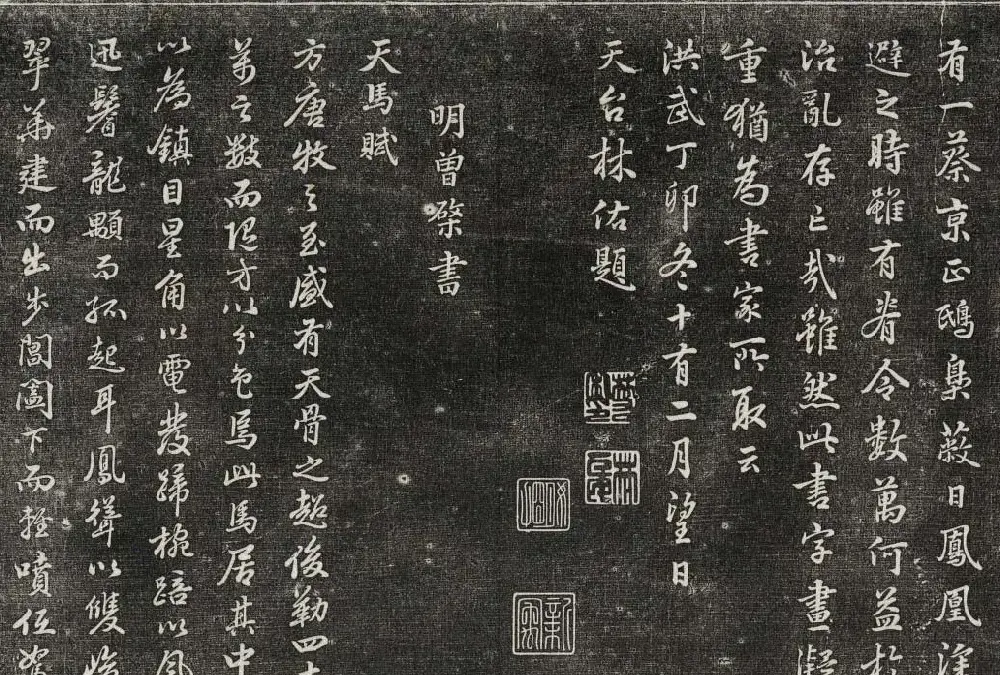 有一蔡京正鴟梟蔽日鳳凰深
避之時雖有脊令數萬何益於
治亂存亡哉雖然此書字畫凝
重猶為書家所取云
洪武丁卯冬十有二月望日
天台林佑題
明曾棨書
天馬賦
方唐牧之至盛有天骨之超俊勒四十
萬之數而隨方以分色焉此馬居其中
以為鎮目星角以電發蹄椀踣以風
迅鬐龍顒而孤起耳鳳聳以雙
翠華建而出步閶闔下而輕噴低駑